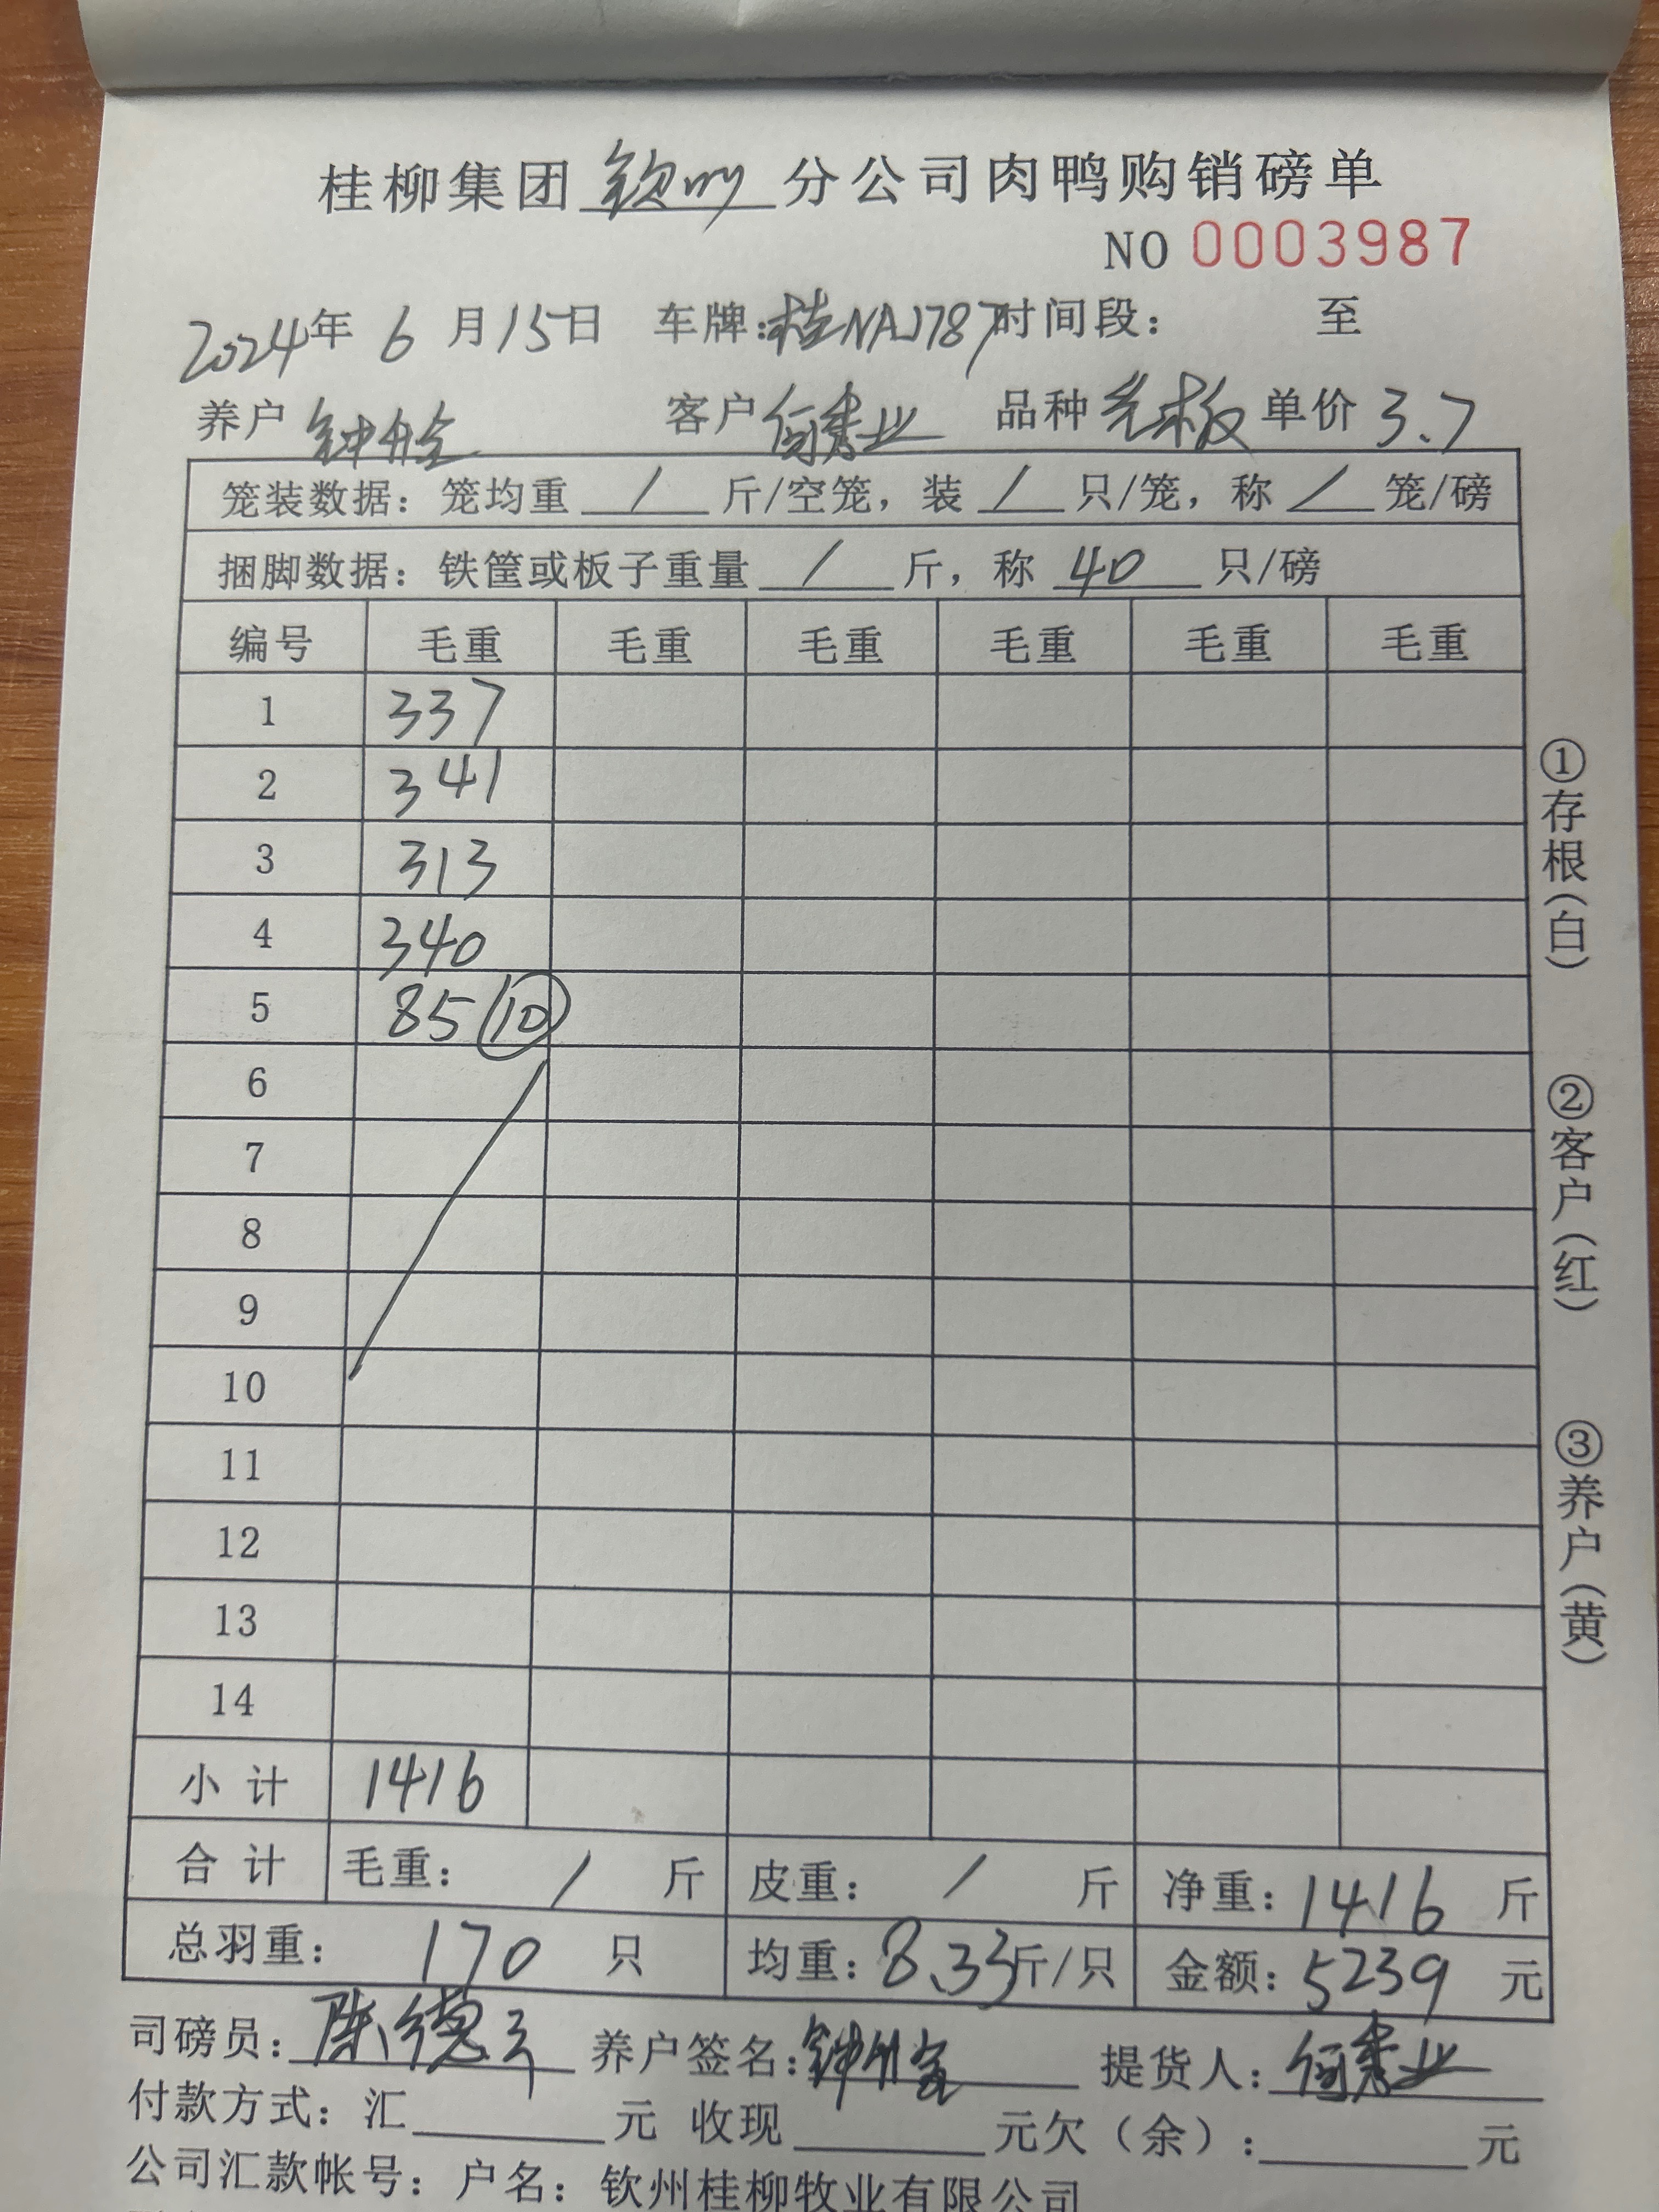 桂柳集团 钦州 分公司肉鸭购销磅单
NO 0003987
2024年 6 月 15日 车牌:桂NAJ787 时间段: 至
养户 钟 客户 何秀业 品种 光板 单价 3.7
笼装数据: 笼均重 / 斤/空笼, 装 / 只/笼, 称 / 笼/磅
捆脚数据: 铁筐或板子重量 / 斤, 称 40 只/磅
编号 毛重 毛重 毛重 毛重 毛重 毛重
1 337
2 341
3 313
4 340
5 85 ⑩
6
7
8
9
10
11
12
13
14
小 计 1416
合 计 毛重: / 斤 皮重: / 斤 净重: 1416 斤
总羽重: 170 只 均重: 8.33斤/只 金额: 5239 元
司磅员: 陈德 养户签名: 钟 提货人: 何秀业
付款方式: 汇 元 收现 元欠(余): 元
公司汇款帐号: 户名: 钦州桂柳牧业有限公司
①存根(白)
②客户(红)
③养户(黄)